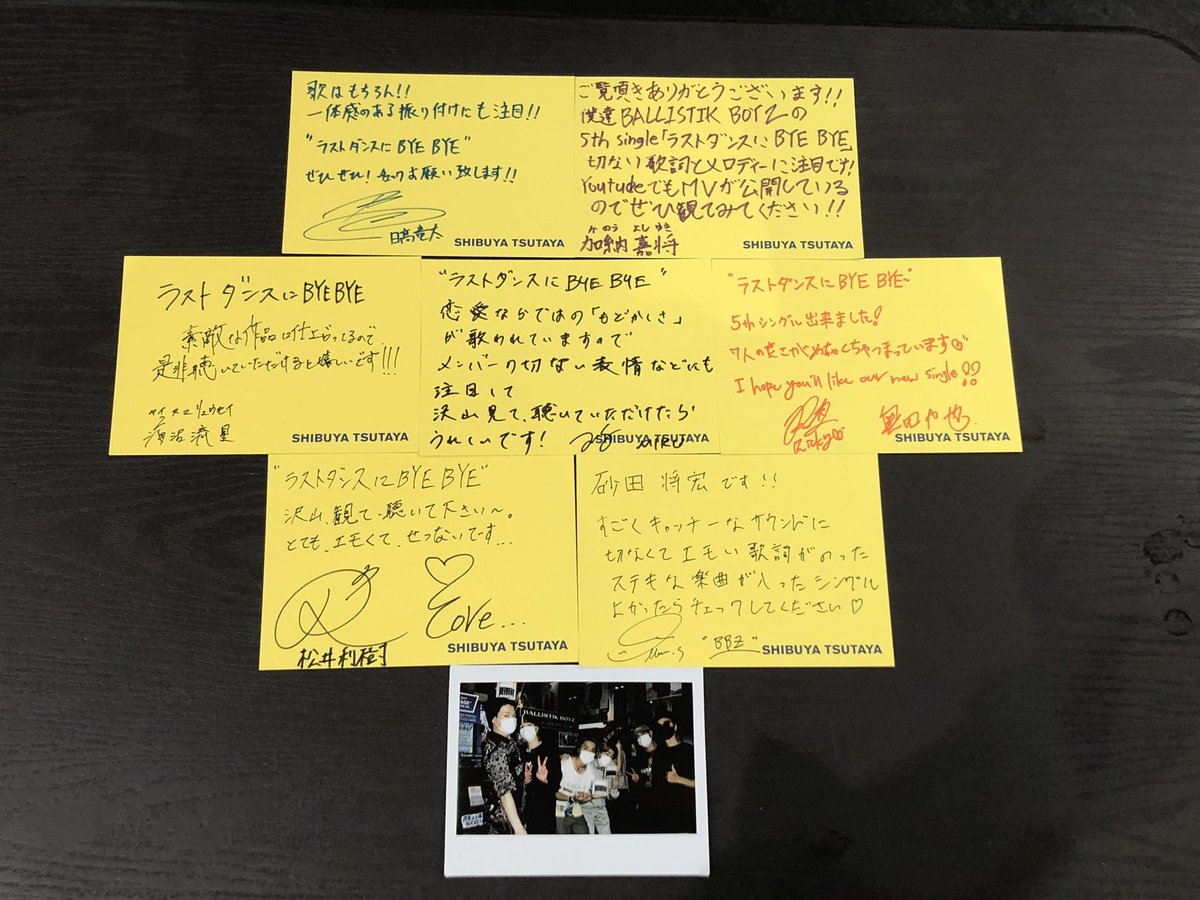 歌はもちろん!!
一体感のある振り付けにも注目!!
"ラストダンスに BYE BYE"
ぜひぜひ! お願い致します!!
日髙竜太
SHIBUYA TSUTAYA
ご覧頂きありがとうございます!!
僕達 BALLISTIK BOYZの
5th single「ラストダンスに BYE BYE」
切ない歌詞とメロディーに注目です!
YoutubeでもMVが公開している
のでぜひ観てみてください!!
かのう よしゆき
加納 嘉将
SHIBUYA TSUTAYA
ラストダンスにBYE BYE
素敵な作品に仕上がってるので、
是非聴いていただけると嬉しいです!!!
カイヌマ リュウセイ
海沼流星
SHIBUYA TSUTAYA
"ラストダンスに BYE BYE"
恋愛ならではの「もどかしさ」
が歌われていますので
メンバーの切ない表情などにも
注目して
沢山見て、聴いていただけたら
うれしいです!
SHIBUYA TSUTAYA
"ラストダンスに BYE BYE"
5thシングル出来ました!
7人の良さがめちゃくちゃつまっています
I hope you'll like our new single!!
Ricky
奥田力也
SHIBUYA TSUTAYA
"ラストダンスに BYE BYE"
沢山、観て、聴いて下さい〜。
とても、エモくて、せつないでーす...
Love...
松井利樹
SHIBUYA TSUTAYA
砂田 将宏です!!
すごくキャッチーなサウンドに
切なくてエモい歌詞がのった
ステキな楽曲が入ったシングル
よかったらチェックしてください♡
"BBZ"
SHIBUYA TSUTAYA
BALLISTIK BOYZ